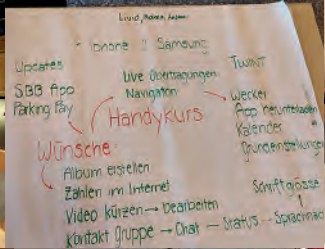 iphone Samsung
Updates
SBB App
Parking Pay
Live Übertragungen
Navigation
TWINT
Wecker
App herunterladen
Kalender
Grundeinstellungen
Handykurs
Wünsche:
Album erstellen
Zahlen im Internet
Video kürzen → bearbeiten
Kontakt gruppe → Chat → Status
Schriftgrösse